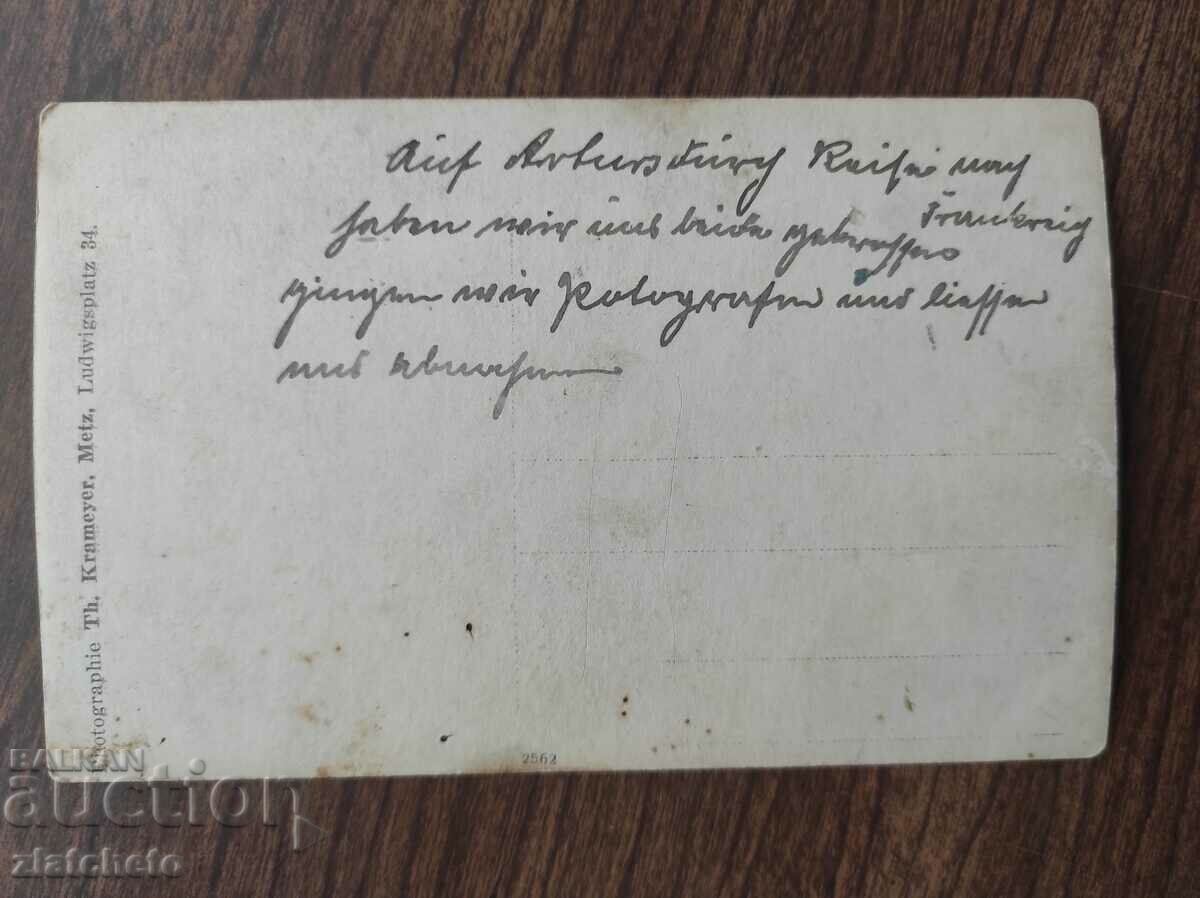 Auf Arturs Durch Reise nach
Frankreich
haben wir uns beide getroffen
gingen wir Potografen und liessen
uns abnehmen
Photographie Th. Krameyer, Metz, Ludwigsplatz 34.
2562
BALKAN
auction
zlatcheto